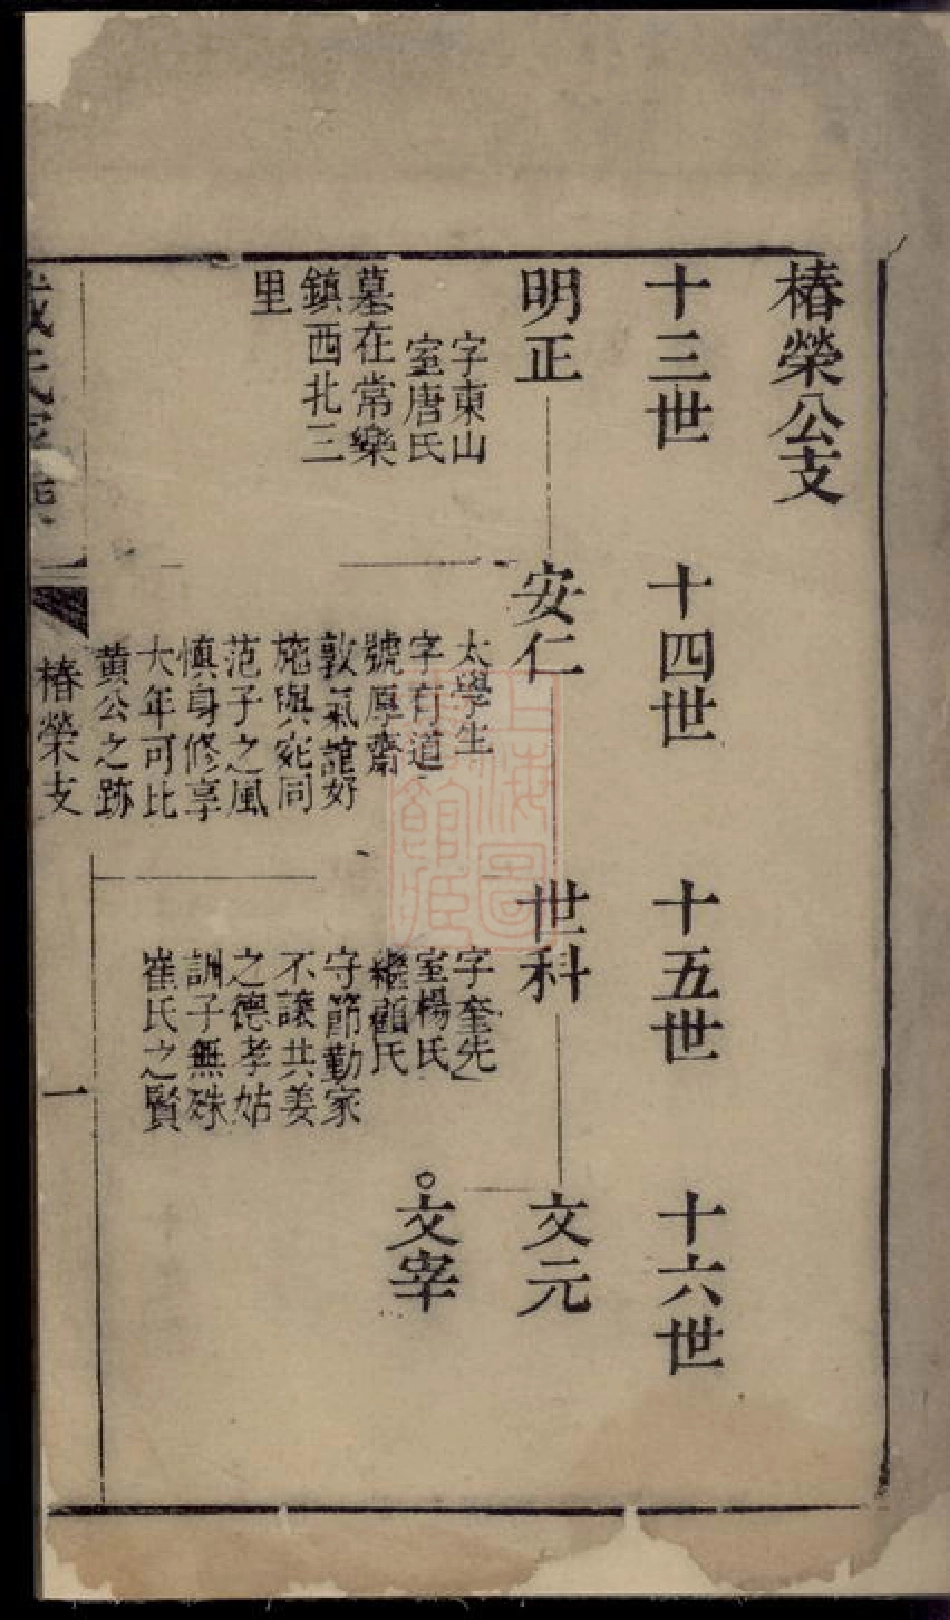 椿榮公支
十三世
十四世
十五世
十六世
明正
安仁
世科
文元
字東山
室唐氏
墓在常樂
鎮西北三
里
太學生
字有道
號厚齋
敦氣誼好
施與宛同
范子之風
慎身修享
大年可比
黄公之跡
字奎先
室楊氏
繼顧氏
守節勤家
不讓共姜
之德孝姑
訓子無殊
崔氏之賢
文宰
椿榮支
一
上海圖書館藏